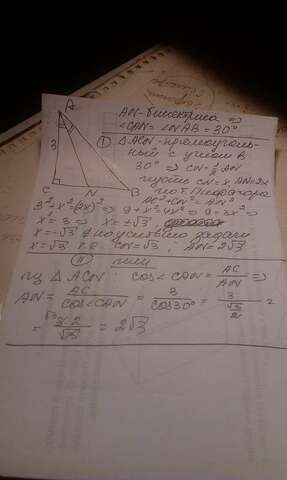 A
3
C N B
AN-биссектриса ⇒
∠CAN=∠NAB=30°
① △ACN-прямоуголь-
ный с углом в
30° ⇒ CN=½AN
пусть CN=x AN=2x
по т. Пифагора
AC²+CN²=AN²
3²+x²=(2x)² ⇒ 9+x²=4x² ⇒ 9=3x² ⇒
x²=3 ⇒ x=±√3
x=-√3 ∉ по условию задачи
x=√3 т.е. CN=√3 ; AN=2√3
② или
из △ACN: cos∠CAN = AC/AN ⇒
AN = AC/cos∠CAN = 3/cos30° = 3/(√3/2) =
= 3·2/√3 = 2√3